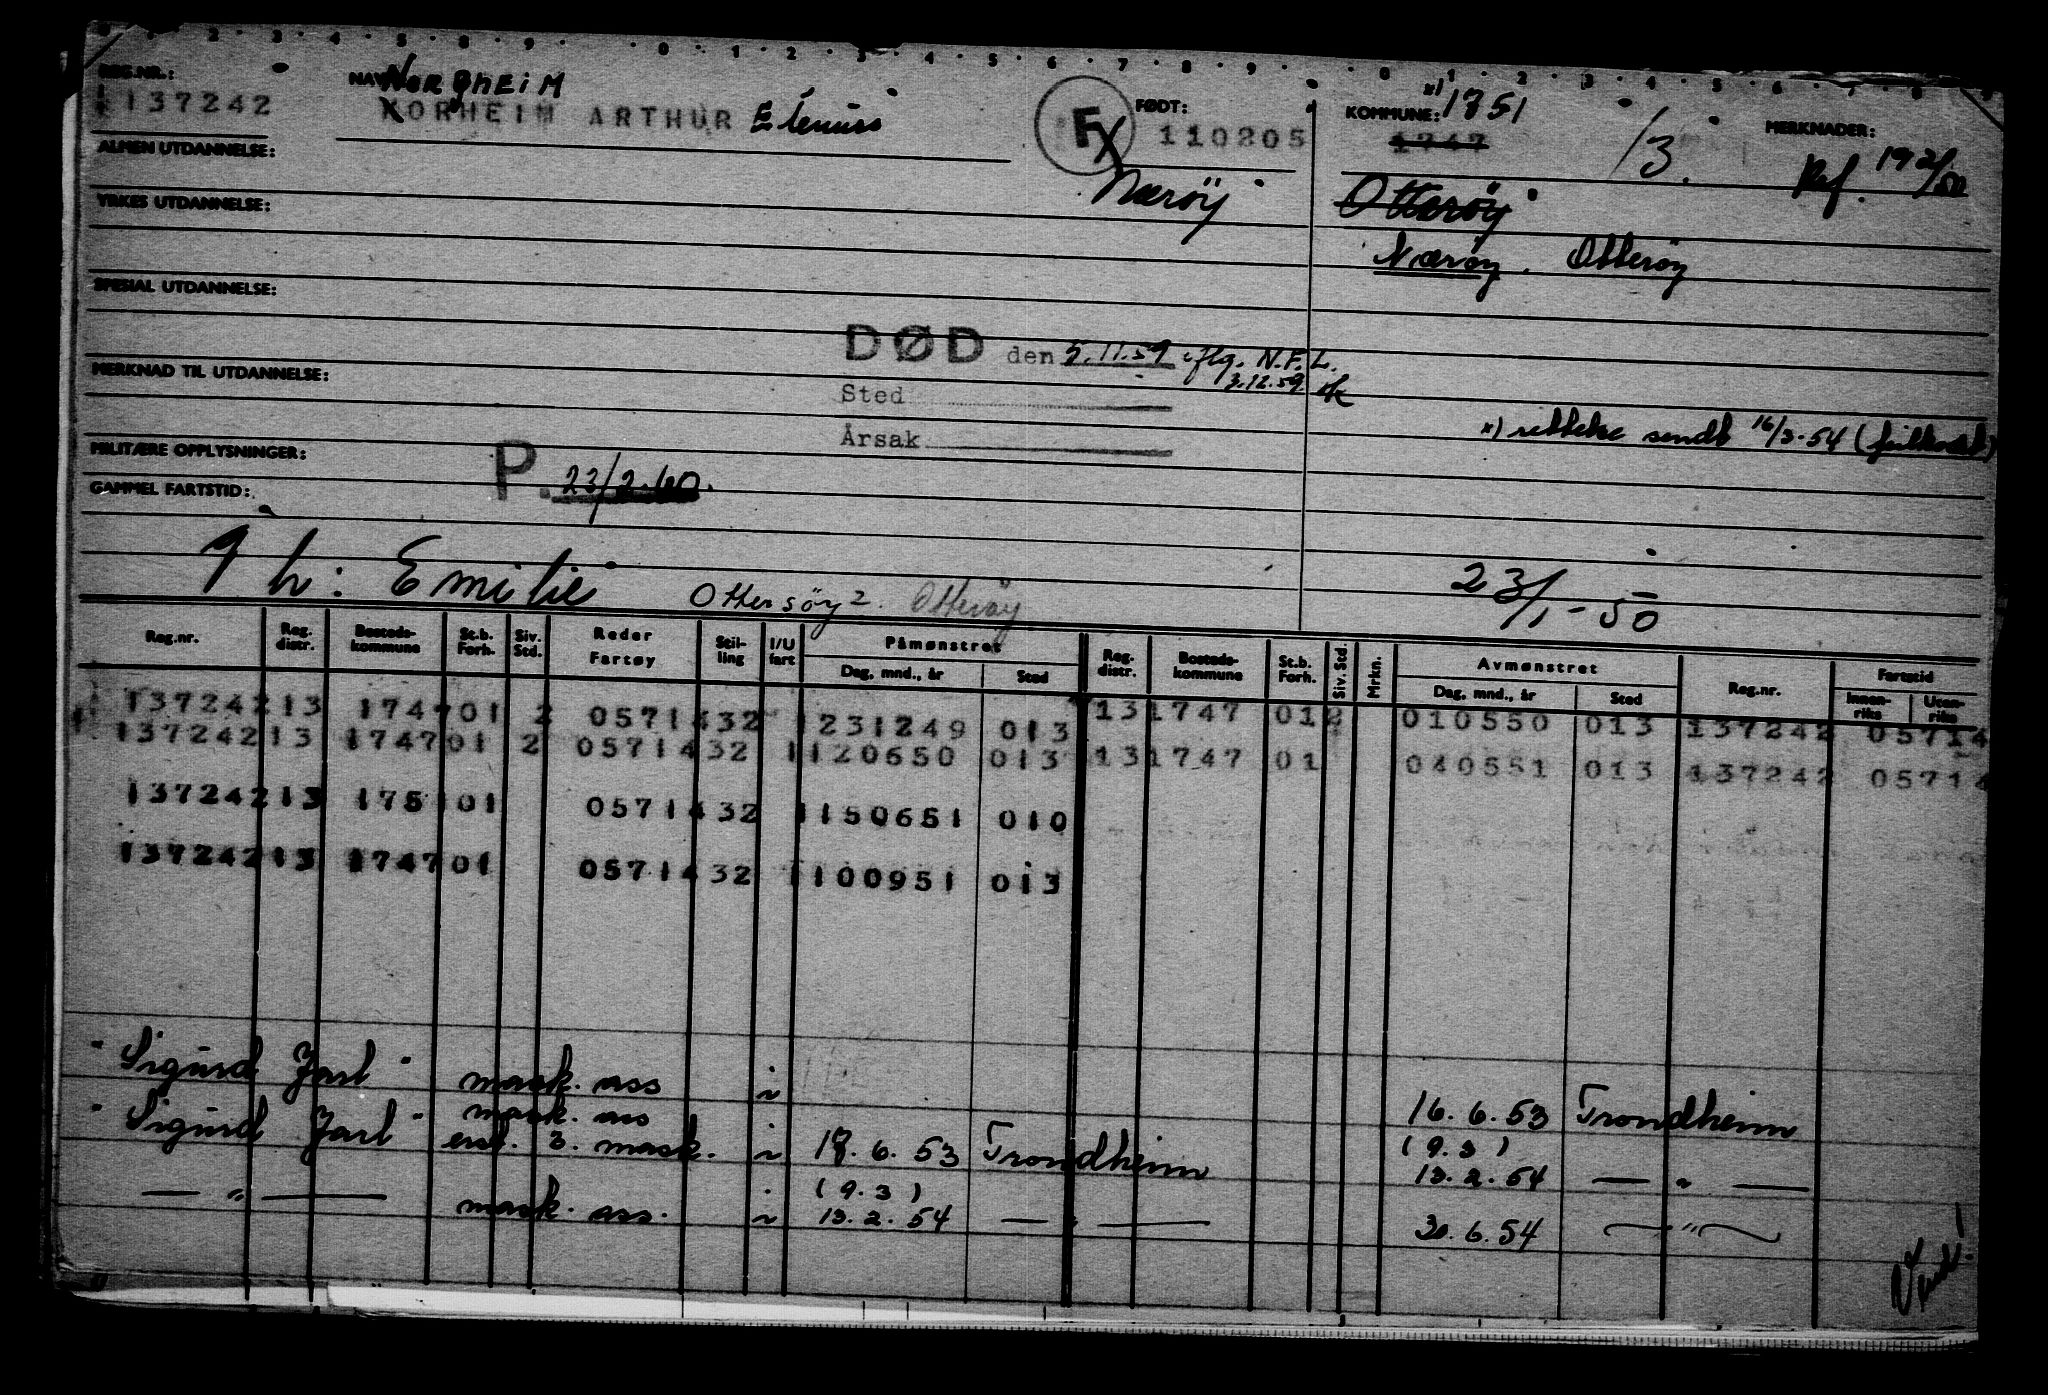 REG.NR.: 137242
NAVN: NORDHEIM
NORHEIM ARTHUR Elenius
FX
FØDT: 110205
Nærøy
KOMMUNE: x) 1751
1747
13.
MERKNADER:
Ref. 192/50
Otterøy
Nærøy. Otterøy
ALMEN UTDANNELSE:
YRKES UTDANNELSE:
SPESIAL UTDANNELSE:
DØD den 5.11.59 iflg. N.F.L.
3.12.59
MERKNAD TIL UTDANNELSE:
Sted
Årsak
x) rettelse sendt 16/3-54
MILITÆRE OPPLYSNINGER:
P. 23/2.60.
GAMMEL FARTSTID:
g h: Emilie Ottersøy 2. Otterøy
23/1-50
Reg.nr. Reg. distr. Bosteds-kommune St.b. Forh. Siv. Std. Reder Fartøy Stil-ling I/U fart Påmønstret Dag, mnd., år Sted Reg. distr. Bosteds-kommune St.b. Forh. Siv. Std. Mrkn. Avmønstret Dag, mnd., år Sted Reg.nr. Fartstid Innen-riks Uten-riks
137242 13 1747 01 2 05714 32 1231249 013 13 1747 01 2 010550 013 137242 05714
137242 13 1747 01 2 05714 32 1120650 013 13 1747 01 040551 013 137242 05714
137242 13 175 01 05714 32 1150651 010
137242 13 1747 01 05714 32 1100951 013
"Sigurd Jarl" mask. ass i 16.6.53 Trondheim
mask. ass (9.3)
"Sigurd Jarl" erst. 3. mask. i 17.6.53 Trondheim 13.2.54 — " —
(9.3)
— " — mask. ass. i 13.2.54 — " — 30.6.54 — " —